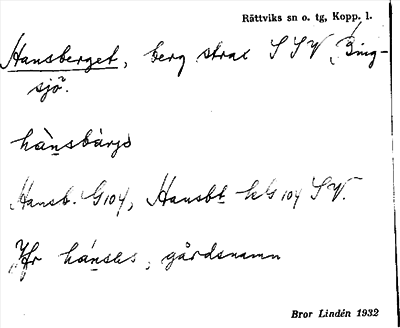 Rättviks sn o. tg, Kopp. l.
Hansberget, berg strax SSV Bing-
sjö.
hànsbàrgs
Hansb. G 104, Hansbt kls 104 SV.
Jfr hánses, gårdsnamn
Bror Lindén 1932